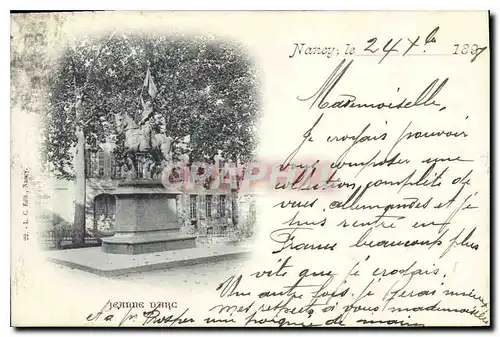 Nancy, le 24 Xbre 1898
Mademoiselle,
Je croyais pouvoir
vous composer une
collection complète de
vues allemandes et je
suis rentré en
France beaucoup plus
vite que je croyais.
Une autre fois, je ferai mieux
mes respects à vous mademoiselle
A Mr Prosper une poignée de main
JEANNE D'ARC
22. - L. C. Edit., Nancy.
CPARAMA